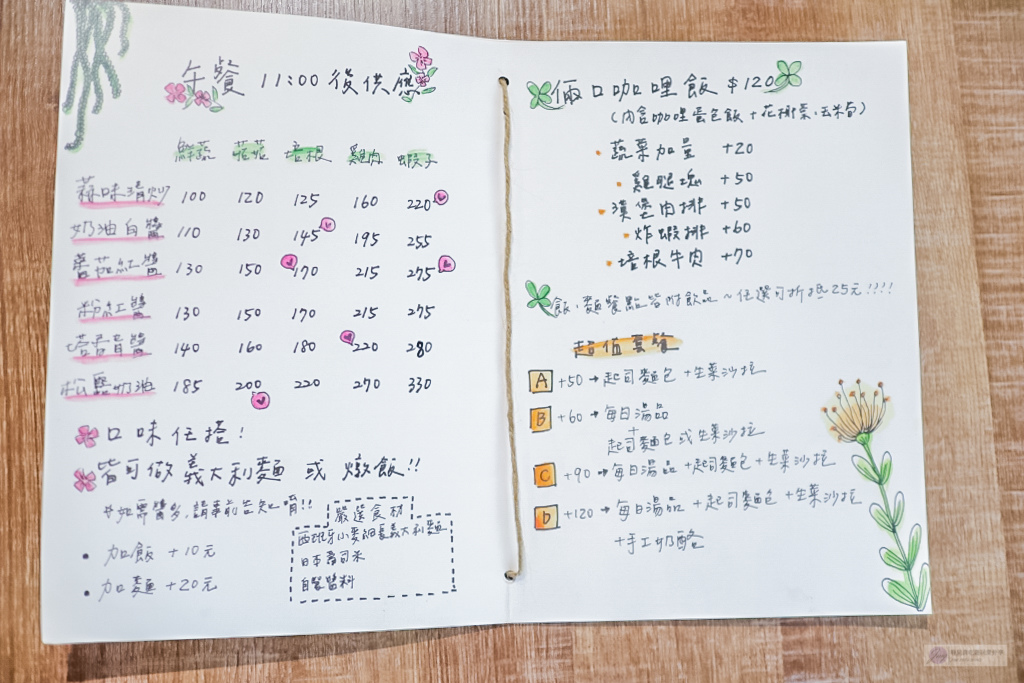 午餐 11:00後供應
鮮蔬 菇菇 培根 雞肉 蝦子
蒜味清炒 100 120 125 160 220
奶油白醬 110 130 145 195 255
蕃茄紅醬 130 150 170 215 275
粉紅醬 130 150 170 215 275
塔香青醬 140 160 180 220 280
松露奶油 185 200 220 270 330
口味任搭!
皆可做義大利麵 或 燉飯!!
*如需醬多,請事前告知唷!!
• 加飯 +10元
• 加麵 +20元
嚴選食材
西班牙小麥細扁義大利麵
日本壽司米
自製醬料
倆口咖哩飯 $120
(內含咖哩蛋包飯+花椰菜、玉米筍)
• 蔬菜加量 +20
• 雞腿塊 +50
• 漢堡肉排 +50
• 炸蝦排 +60
• 培根牛肉 +70
飯、麵餐點皆附飲品~任選可折抵25元!!!!
超值套餐
A +50→起司麵包+生菜沙拉
B +60→每日湯品
+
起司麵包或生菜沙拉
C +90→每日湯品+起司麵包+生菜沙拉
D +120→每日湯品+起司麵包+生菜沙拉
+手工奶酪